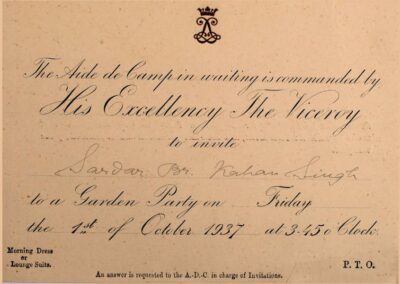 The Aide de Camp in waiting is commanded by
His Excellency The Viceroy
to invite
Sardar Br. Kahan Singh
to a Garden Party on Friday
the 1st of October 1937 at 3.45 o'Clock.
Morning Dress
or
Lounge Suits.
An answer is requested to the A.-D.-C. in charge of Invitations.
P. T. O.